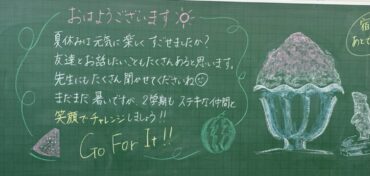 おはようございます
夏休みは元気に楽しくすごせましたか？
友達とお話したいこともたくさんあると思います。
先生にもたくさん聞かせてくださいね
まだまだ暑いですが、2学期もステキな仲間と
笑顔でチャレンジしましょう!!
Go For It!!
宿
あとで